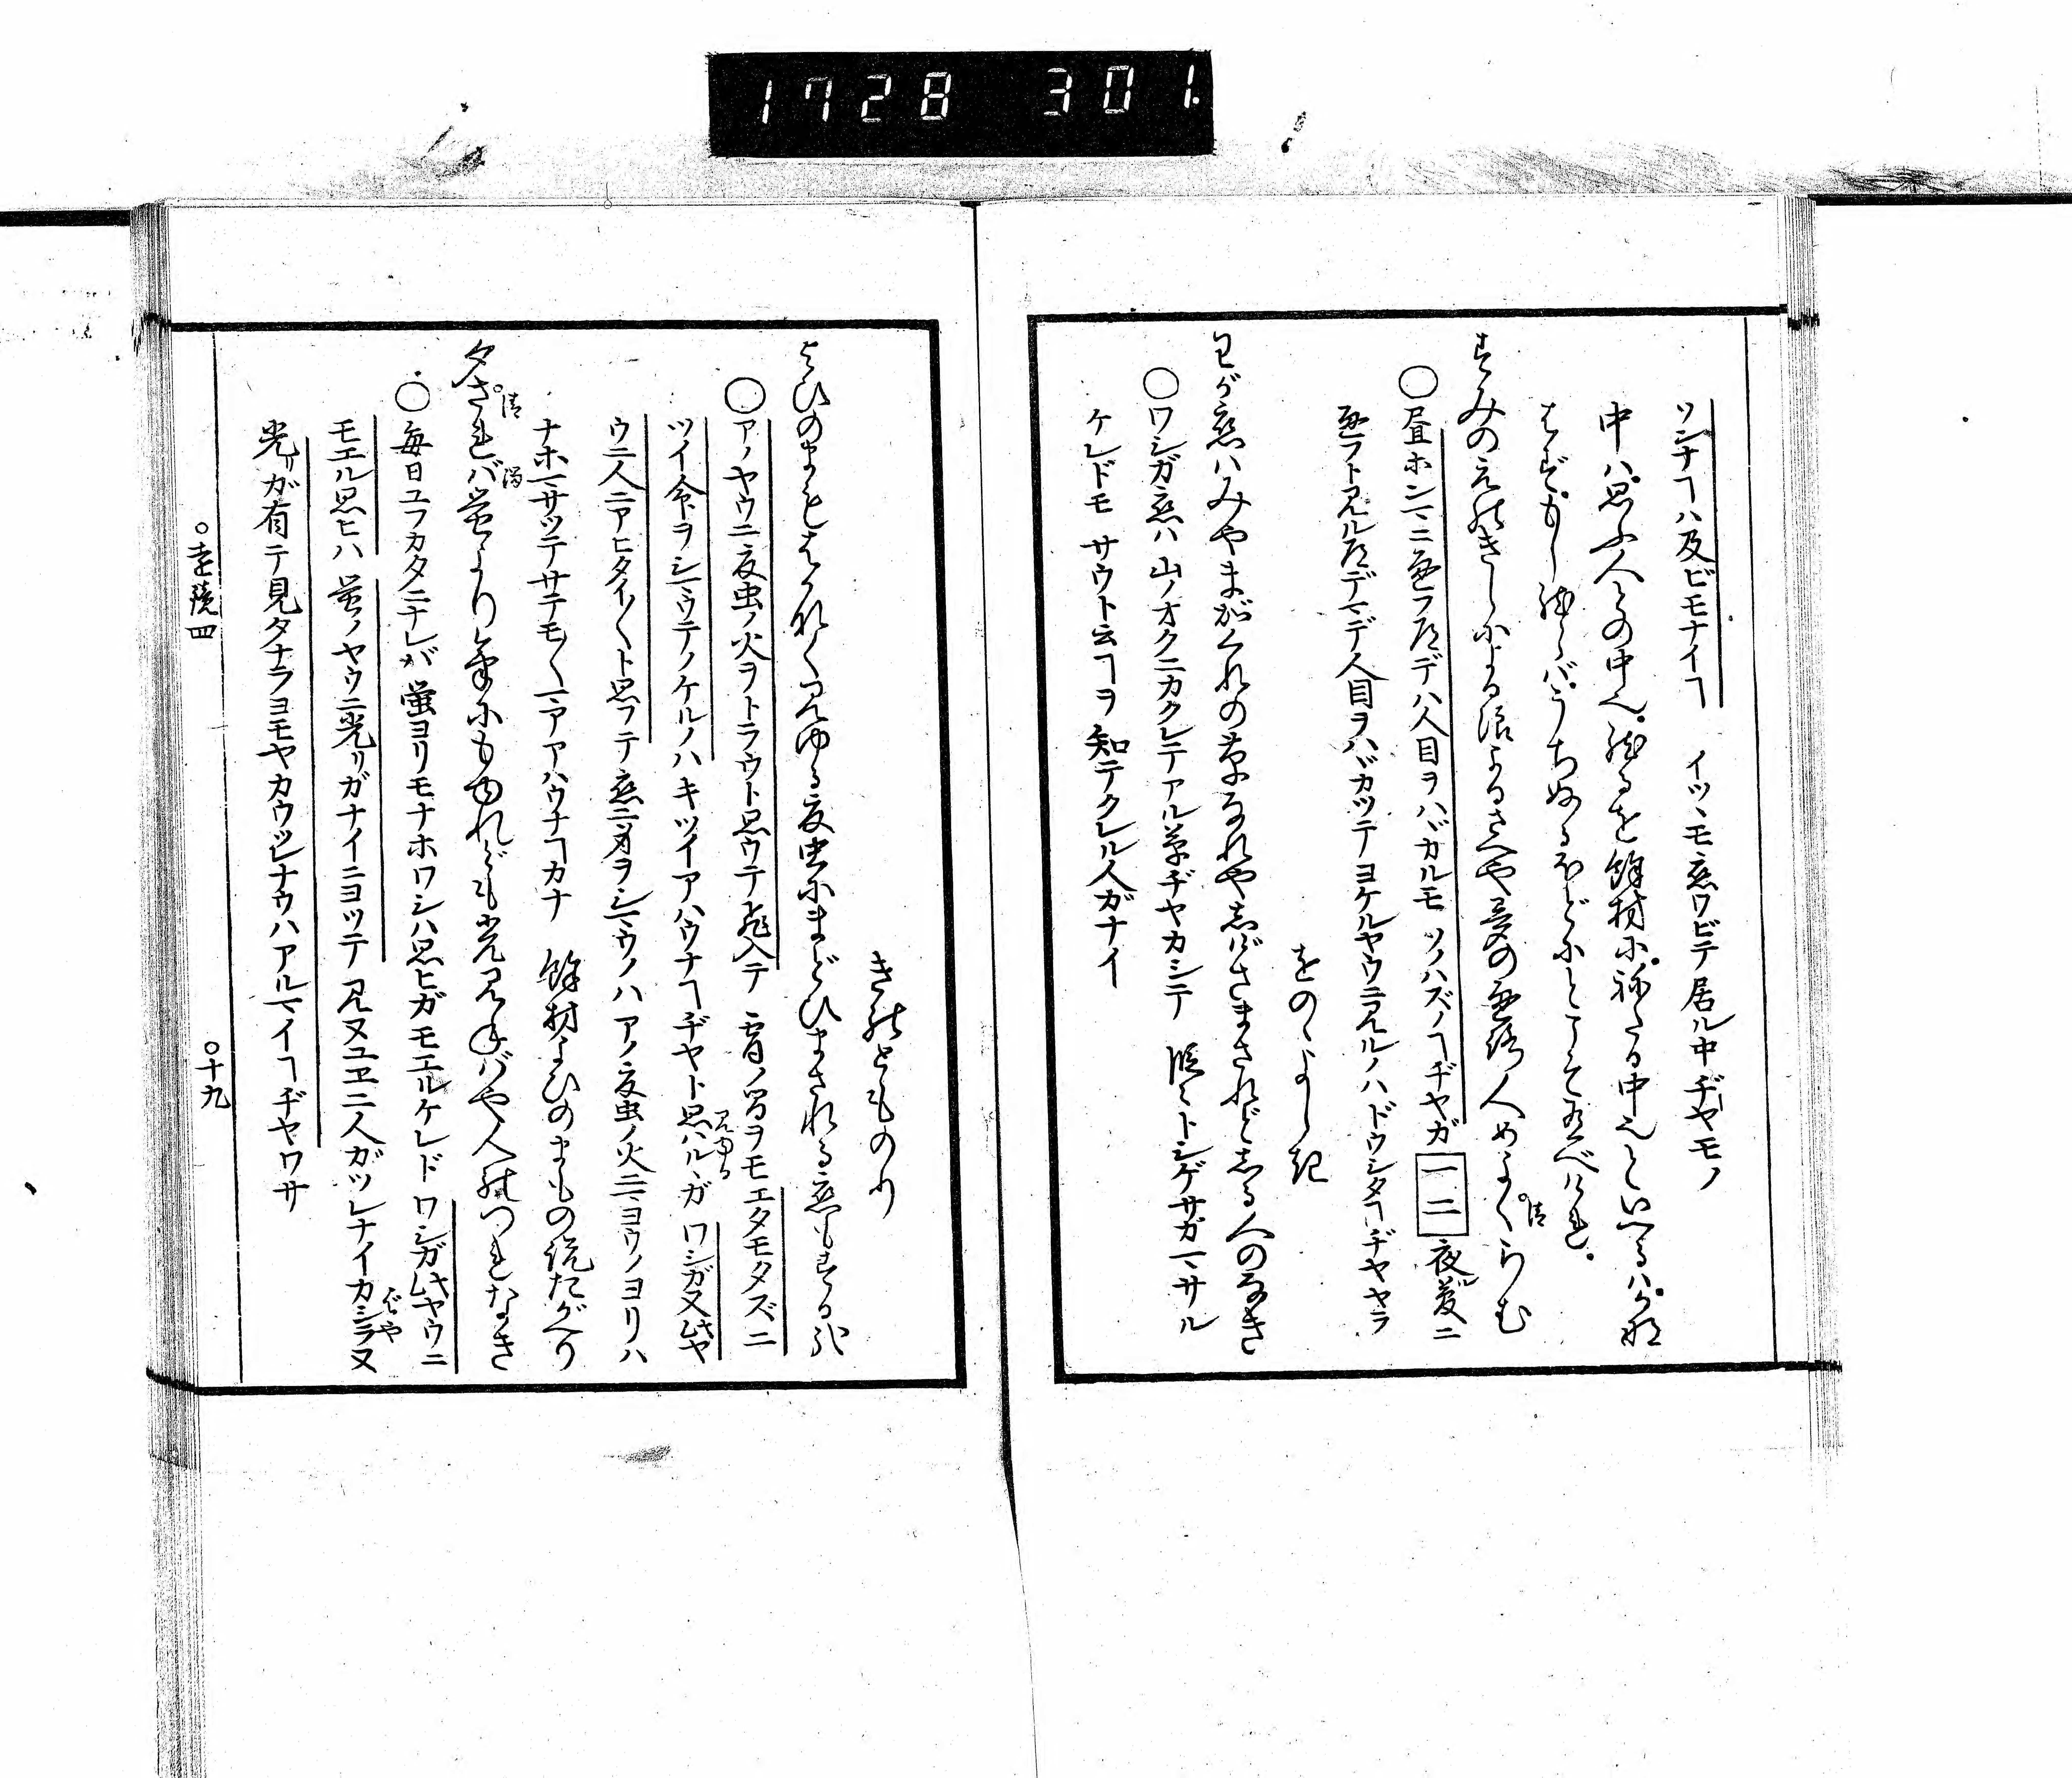 1728 301.
ソンナヿハ及ビモナイヿ イツヽモ恋ワビテ居ル中ヂヤモノ
中ハ思ふ人との中也。然るを餘材に。祢たる中也といへるハ。かな
はず。もし然らバ。うちぬるほどにとこそ有べけれ。
すみのえのきしによる波よるさへや夢の通路人めよくらむ
○昼ホンマニ通フ道デハ人目ヲハヾカルモ ソノハズノヿヂヤガ 一二 夜夢ニ
通フト見ル道デマデ人目ヲハヾカツテヨケルヤウニ見ルノハドウシタヿヂヤヤラ
をのゝよし記
わが恋ハみやまがくれの草なれや志げさまされど志る人のなき
○ワシガ恋ハ山ノオクニカクレテアル草ヂヤカシテ 段々トシゲサガマサル
ケレドモ サウト云ヿヲ知テクレル人ガナイ
きのとものり
よひのまもはかなく見ゆる夏虫にまどひまされる恋もする哉
○アノヤウニ夏虫ノ火ヲトラウト思ウテ飛入テ 宵ノ間ヲモエタモタズニ
ツイ命ヲシマウテノケルノハキツイアハウナヿヂヤト思ハルヽガ ワシガ又此ヤ
見ゆる
ウニ人ニアヒタイ〳〵ト思フテ恋ニ身ヲシマウノハアノ夏虫ノ火ニマヨウノヨリハ
ナホマサツテサテモ〳〵マアアハウナヿカナ 餘材よひのまもの説たがへり
夕されバ蛍よりけにもゆれども光見ねバや人のつれなき
清 濁
○毎日ユフカタニナレバ蛍ヨリモナホワシハ思ヒガモエルケレド ワシガ此ヤウニ
モエル思ヒハ 蛍ノヤウニ光リガナイニヨツテ 見ヌユヱニ人ガツレナイカシラヌ
ばや
光リガ有テ見タナラヨモヤカウツレナウハアルマイヿヂヤワサ
○遠鏡四 ○十九